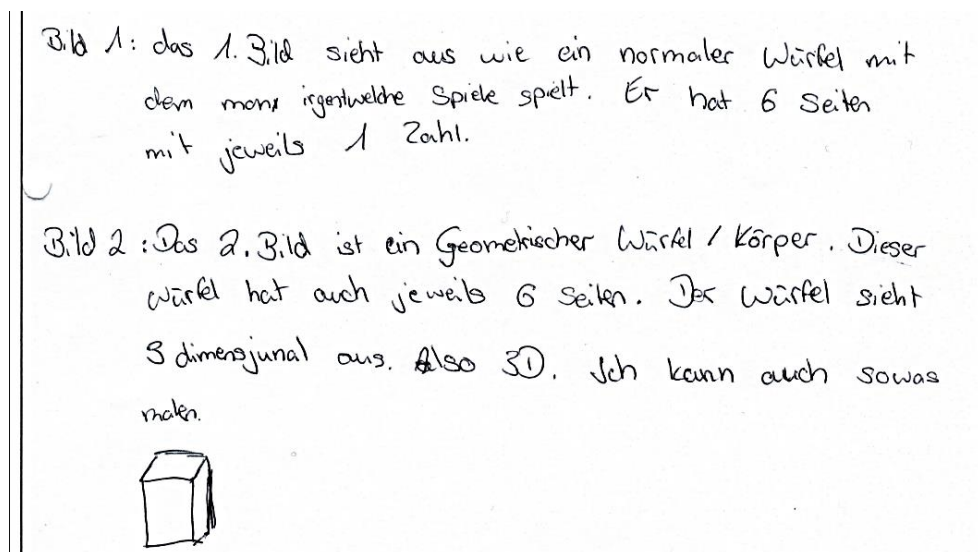 Bild 1: das 1. Bild sieht aus wie ein normaler Würfel mit
dem man irgentwelche Spiele spielt. Er hat 6 Seiten
mit jeweils 1 Zahl.
Bild 2: Das 2. Bild ist ein Geometrischer Würfel / Körper. Dieser
würfel hat auch jeweils 6 Seiten. Der Würfel sieht
3 dimensjunal aus. Also 3D. Ich kann auch sowas
malen.